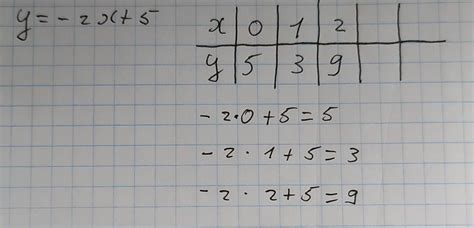 y = - 2x + 5
x 0 1 2
y 5 3 9
- 2 · 0 + 5 = 5
- 2 · 1 + 5 = 3
- 2 · 2 + 5 = 9